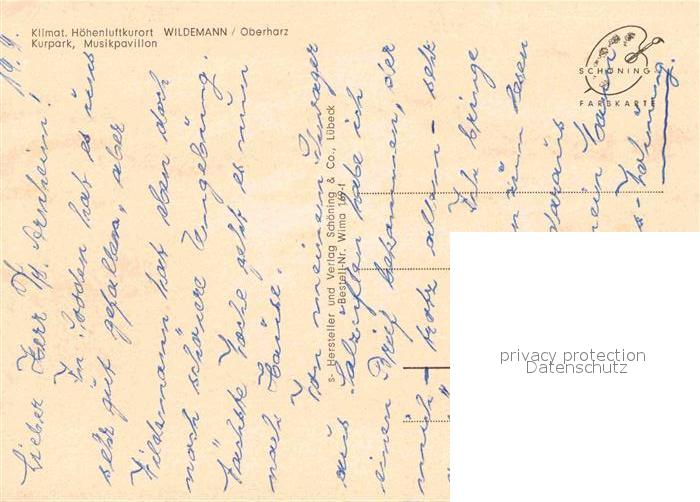 Klimat. Höhenluftkurort WILDEMANN / Oberharz
Kurpark, Musikpavillon
SCHÖNING
FARBKARTE
s- Hersteller und Verlag Schöning & Co., Lübeck
Bestell-Nr. Wima 169-f
19.9.
Lieber Herr Arnheim!
In hat es uns
sehr gut gefallen, aber
Wildemann hat eben doch
noch schönere Umgebung.
Nächste Woche geht es nun
nach Hause.
Von meinem Schwager
aus Salzuflen habe ich
einen Brief bekommen, der
mich – trotz allem – sehr
Ich bringe
zum Lesen
daraus
mein
privacy protection
Datenschutz